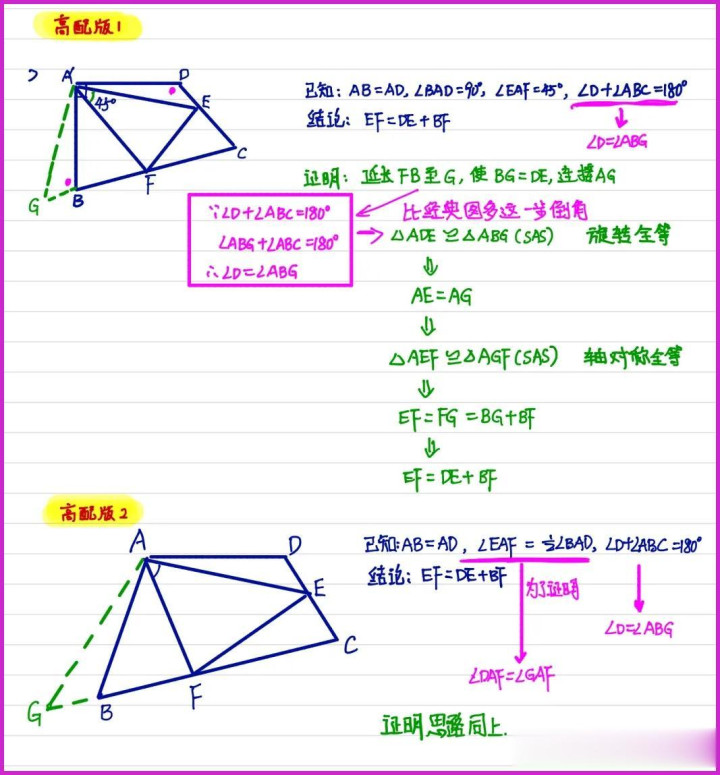 高配版1
A
D
45°
E
C
F
B
G
已知: AB=AD, ∠BAD=90°, ∠EAF=45°, ∠D+∠ABC=180°
∠D=∠ABG
结论: EF=DE+BF
证明: 延长FB至G, 使BG=DE, 连接AG
比经典图多这一步倒角
∵∠D+∠ABC=180°
∠ABG+∠ABC=180°
∴∠D=∠ABG
△ADE≌△ABG(SAS) 旋转全等
⇓
AE=AG
⇓
△AEF≌△AGF(SAS) 轴对称全等
⇓
EF=FG=BG+BF
⇓
EF=DE+BF
高配版2
A
D
E
C
F
B
G
已知:AB=AD, ∠EAF=½∠BAD, ∠D+∠ABC=180°
结论: EF=DE+BF
为了证明
∠D=∠ABG
∠DAF=∠GAF
证明思路同上.